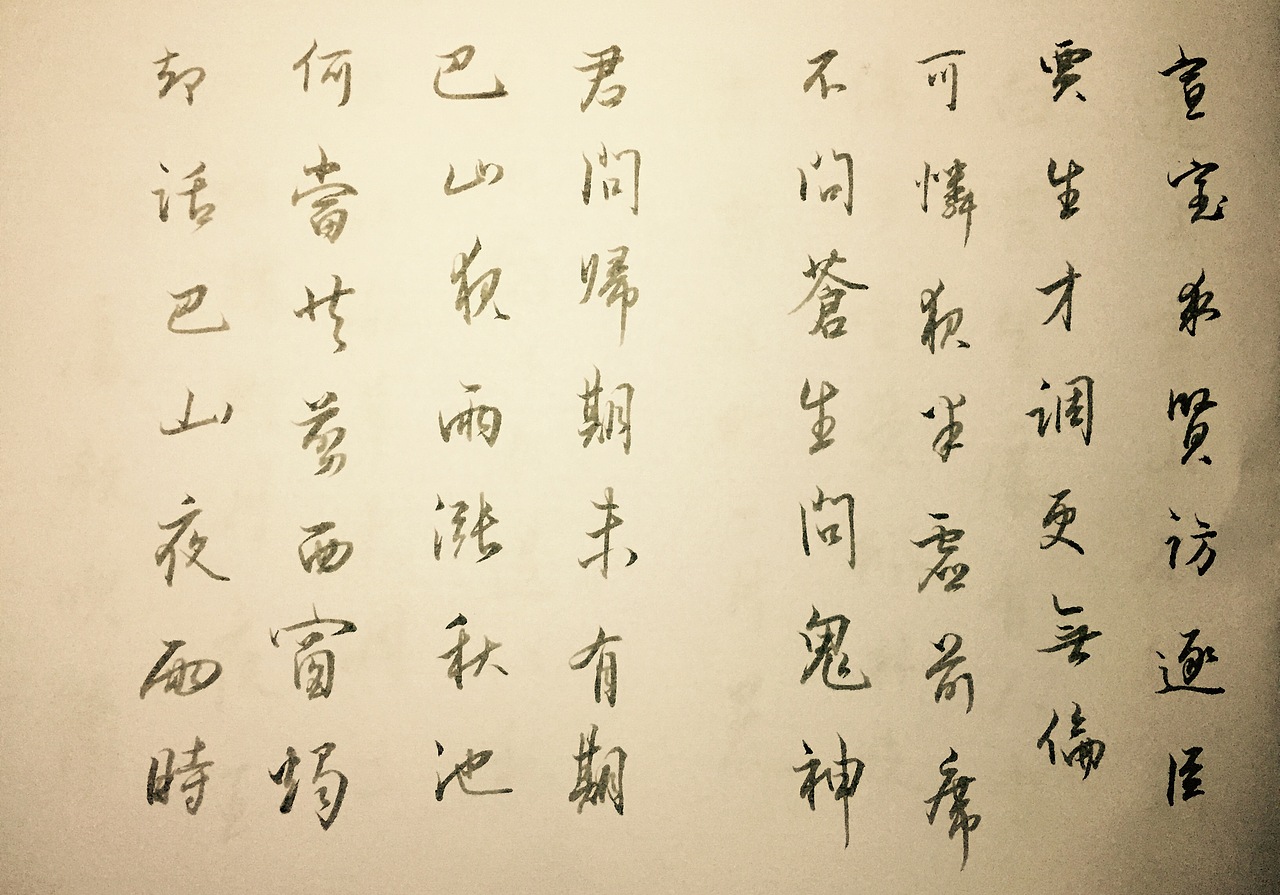 宣室求賢訪逐臣
賈生才調更無倫
可憐夜半虛前席
不問蒼生問鬼神
君問歸期未有期
巴山夜雨漲秋池
何當共剪西窗燭
却話巴山夜雨時